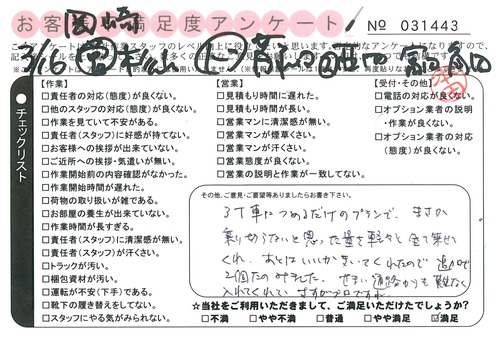 お客様満足度アンケート
No 031443
岡崎
3/6
チェックリスト
【作業】
□責任者の対応(態度)が良くない。
□他のスタッフの対応(態度)が良くない。
□作業を見ていて不安がある。
□責任者(スタッフ)に好感が持てない。
□お客様への挨拶が出来ていない。
□ご近所への挨拶・気遣いが無い。
□作業開始前の内容確認がなかった。
□作業開始時間が遅れた。
□荷物の取り扱いが雑である。
□お部屋の養生が出来ていない。
□作業時間が長すぎる。
□責任者(スタッフ)に清潔感が無い。
□責任者(スタッフ)が汗くさい。
□トラックが汚い。
□梱包資材が汚い。
□運転が不安(下手)である。
□靴下の履き替えをしてない。
□スタッフにやる気がみられない。
【営業】
□見積もり時間に遅れた。
□見積もり時間が長い。
□営業マンに清潔感が無い。
□営業マンが煙草くさい。
□営業マンが汗くさい。
□営業態度が良くない。
□営業の説明と作業が一致してない。
【受付・その他】
□電話の対応が良くない。
□オプション業者の説明
・作業が良くない。
□オプション業者の対応
(態度)が良くない。
その他、ご意見・ご要望等ありましたらお書き下さい。
3T車につめるだけのプランで、まさか
乗り切らないと思った量を軽々と全て乗せ
くれ、あとはいいかきいてくれたので 追加で
2個たのみました。せまい通路からも難なく
入れてくれて さすがプロですね
☆当社をご利用いただきまして、ご満足いただけたでしょうか？
□不満 □やや不満 □普通 □やや満足 ☑満足